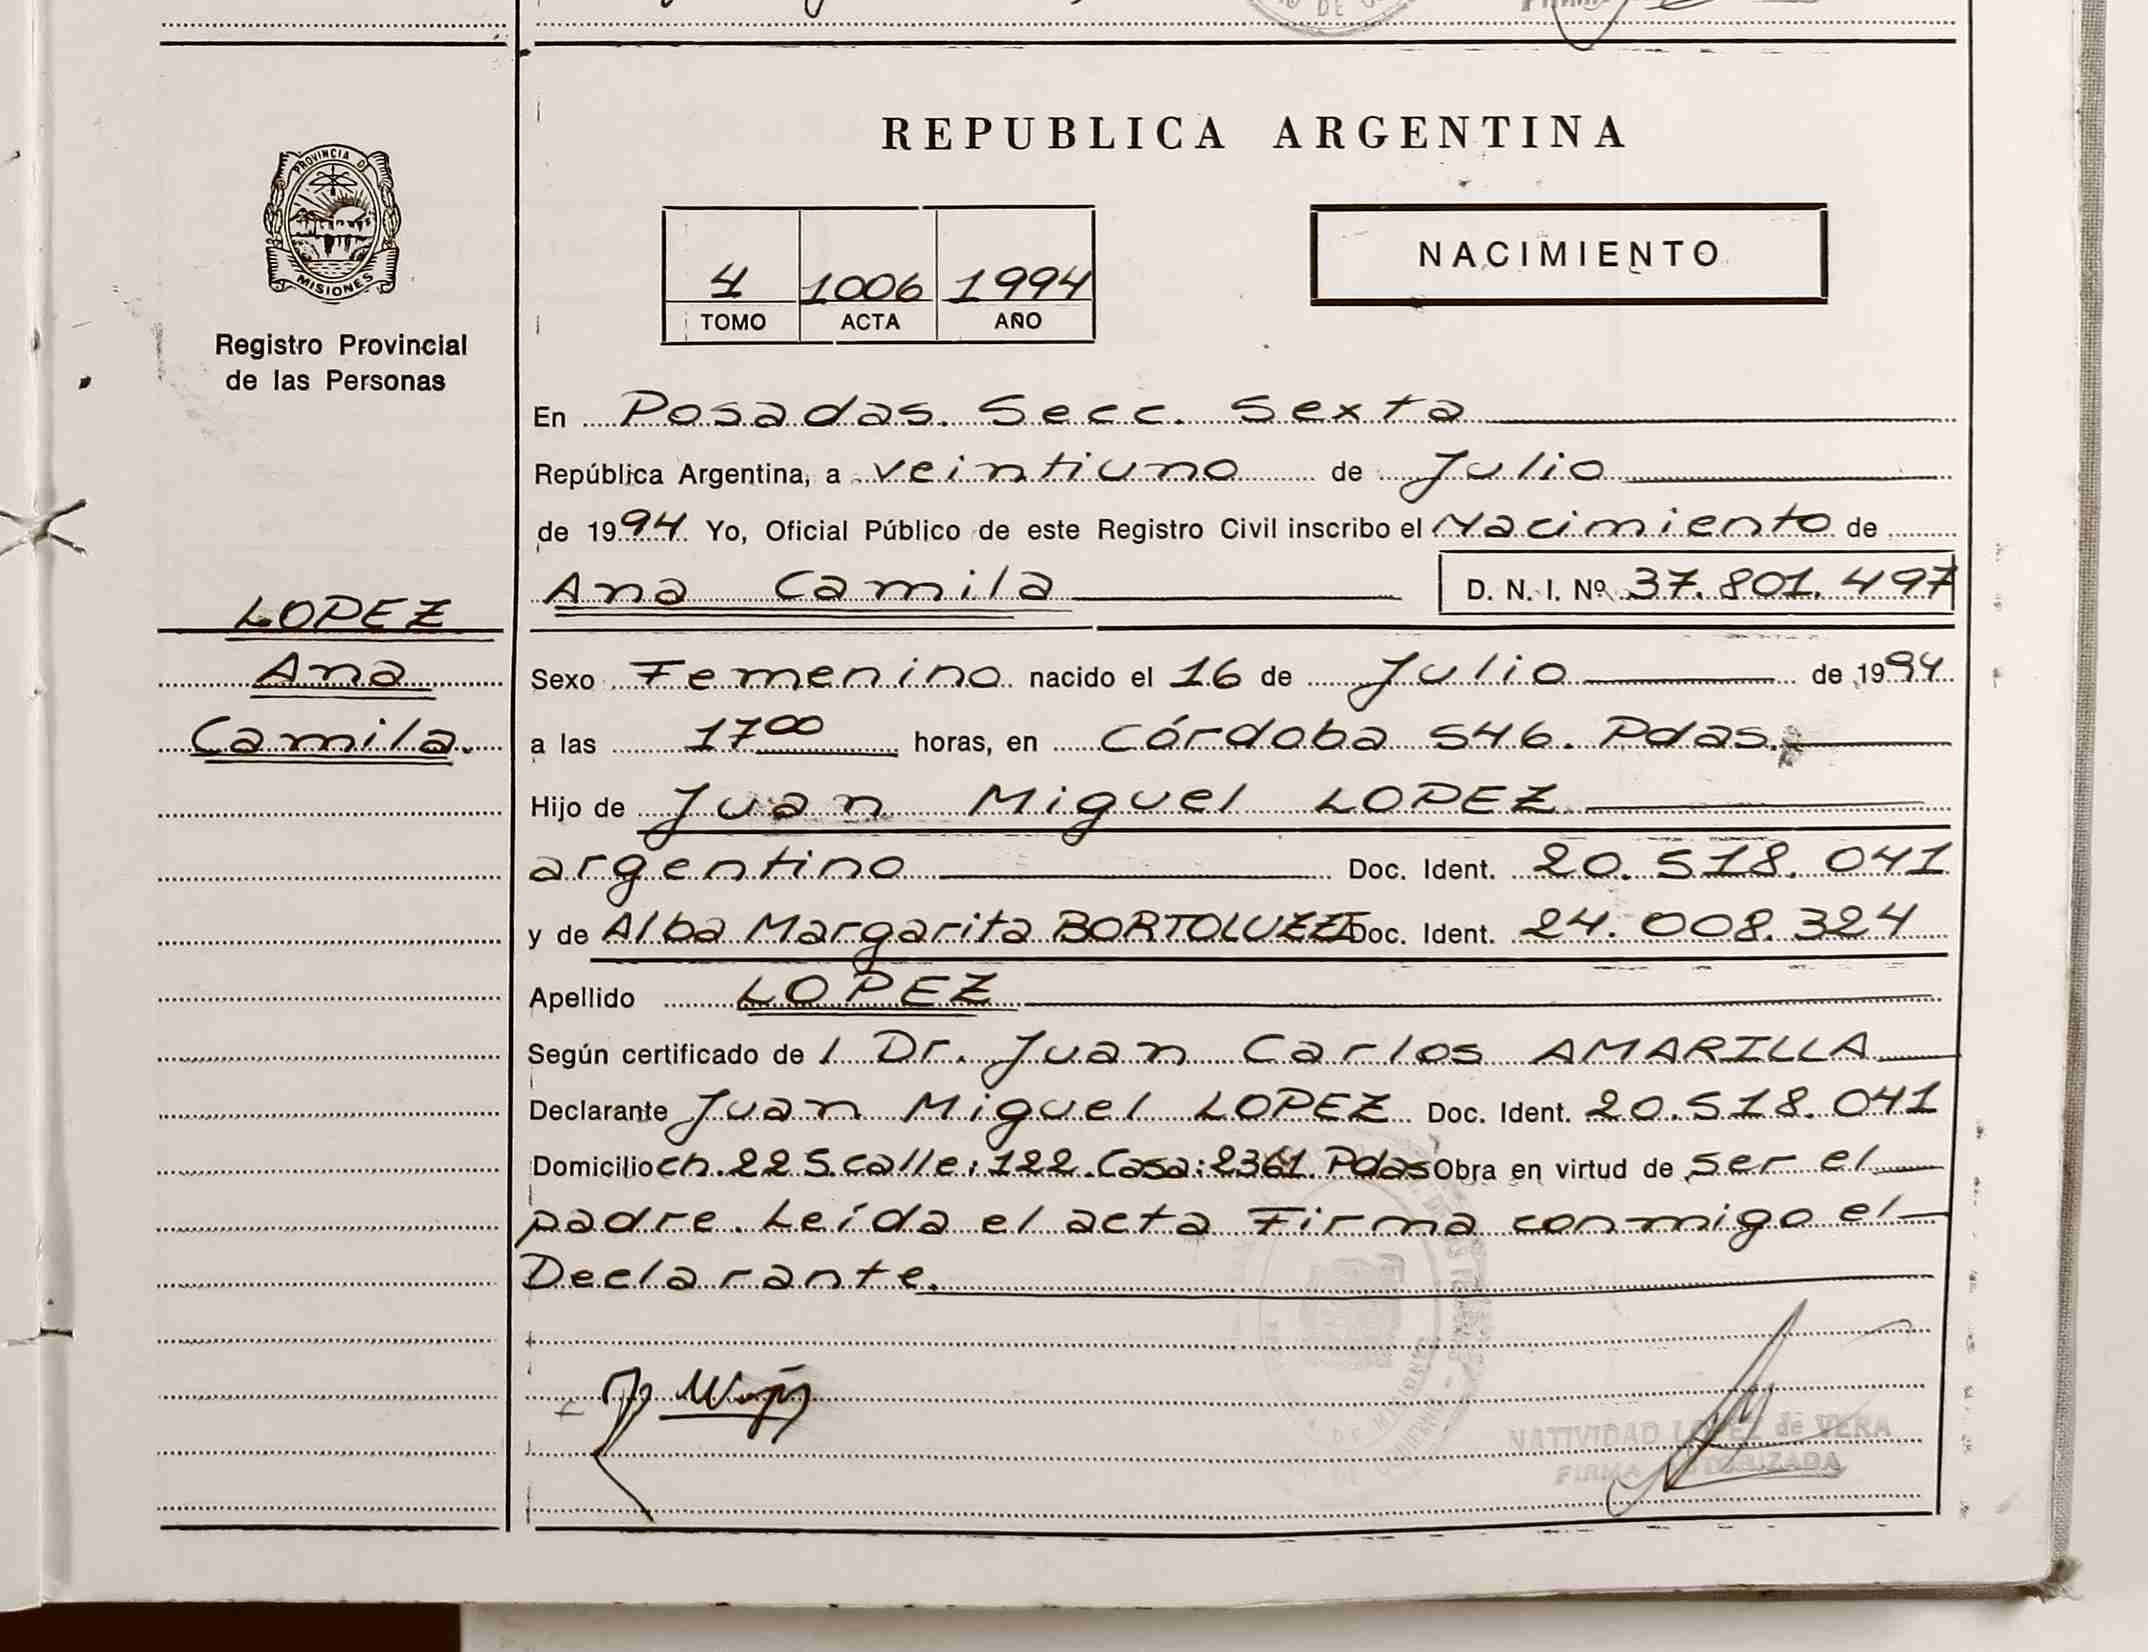 REPUBLICA ARGENTINA
PROVINCIA D
MISIONES
Registro Provincial
de las Personas
4 1006 1994
TOMO ACTA AÑO
NACIMIENTO
En Posadas. Secc. Sexta
República Argentina, a veintiuno de Julio
de 1994 Yo, Oficial Público de este Registro Civil inscribo el Nacimiento de
Ana Camila D. N. I. Nº 37.801.497
LOPEZ
Ana
Camila.
Sexo Femenino nacido el 16 de Julio de 1994
a las 17 00 horas, en Córdoba 546. Pdas.
Hijo de Juan Miguel LOPEZ
argentino Doc. Ident. 20.518.041
y de Alba Margarita BORTOLUZZI Doc. Ident. 24.008.324
Apellido LOPEZ
Según certificado de l Dr. Juan Carlos AMARILLA
Declarante Juan Miguel LOPEZ Doc. Ident. 20.518.041
Domicilio ch. 225 calle: 122. Casa: 2361. Pdas Obra en virtud de ser el
padre. Leída el acta Firma conmigo el
Declarante.
NATIVIDAD LOPEZ de VERA
FIRMA AUTORIZADA